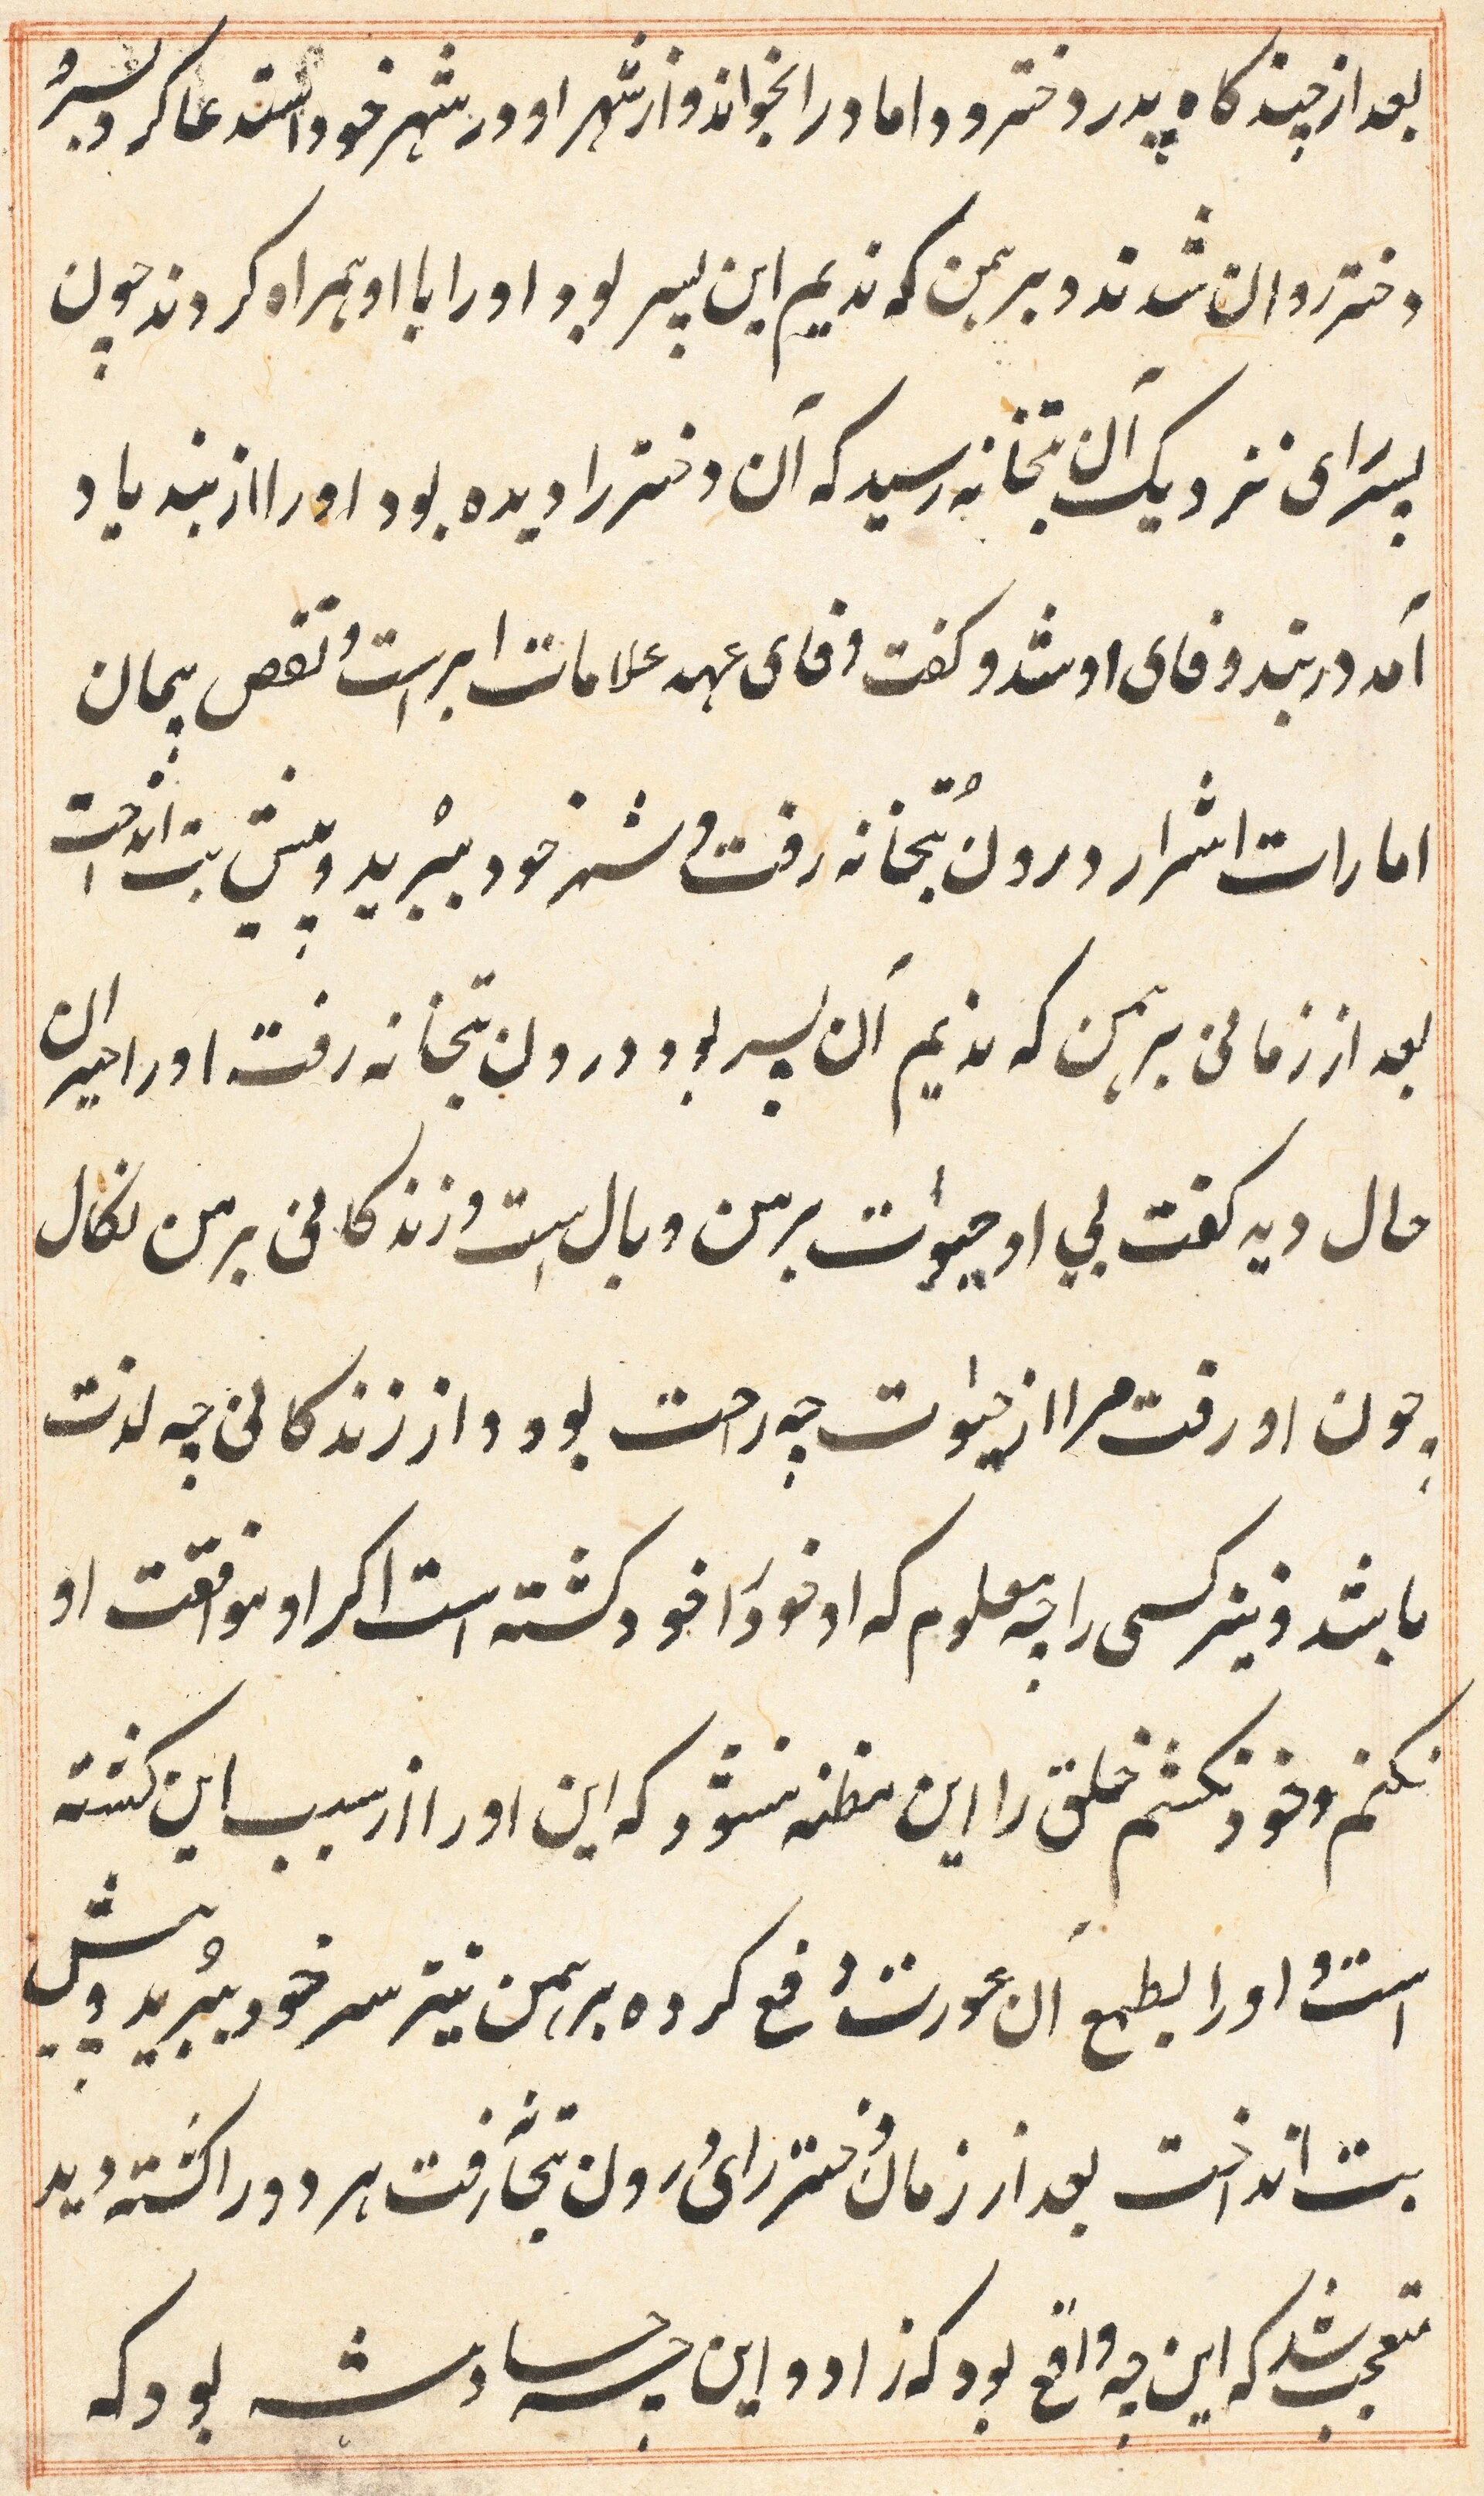 بعد از چند کاه پدر دختر و داماد را بخواند و از شهر او در شهر خود استدعا کرد پسر و
دختر روان شدند و برهمن که ندیم این پسر بود او را با او همراه کردند چون
پسر رای نزدیک آن بتخانه رسید که آن دختر را دیده بود او را از بند یاد
آمد در بند وفای او شد و کفت وفای عهد علامات ابرار است و نقص پیمان
امارات اشرار درون بتخانه رفت و سر خود ببرید و پیش بت انداخت
بعد از زمانی برهمن که ندیم آن پسر بود درون بتخانه رفت او را حیران
حال دید کفت بی او حیوات بر من وبال است و زندکانی بر من نکال
چون او رفت مرا از حیوات چه راحت بود و از زندکانی چه لذت
باشد و نیز کسی را چه معلوم که او خود را خود کشته است اکر او موافقت او
نکنم و خود نکشم خلق را این مظنه نشود که این او را از سبب این کشته
است و او را بطمع آن عورت دفع کرده برهمن نیز سر خود ببرید و پیش
بت انداخت بعد از زمان دختر رای درون بتخانه رفت هر دو را کشته دید
متعجب شد که این چه واقع بود که زاد و این چه حادثه بود که